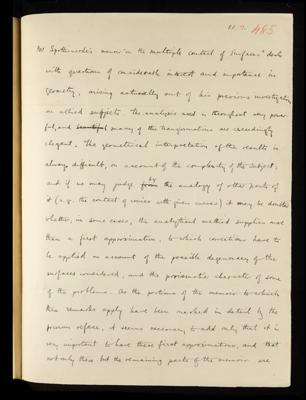 RR. 7. 485
Mr Spottiswoode's memoir "on the multiple contact of surfaces" deals
with questions of considerable interest and importance in
geometry, arising naturally out of his previous investigations
on allied subjects. The analysis used is throughout very power-
ful, and beautiful many of the transformations are exceedingly
elegant. The geometrical interpretation of the results is
always difficult, on account of the complexity of the subject;
and if we may judge from by the analogy of other parts of
it (e.g. the contact of conics with given curves) it may be doubted
whether, in some cases, the analytical method supplies more
than a first approximation, to which corrections have to
be applied on account of the possible degeneracy of the
surfaces considered, and the porismatic character of some
of the problems. As the portions of the memoir to which
these remarks apply have been marked in detail by the
previous referee, it seems necessary to add only that it is
very important to have these first approximations, and that
not only these but the remaining parts of the memoir are